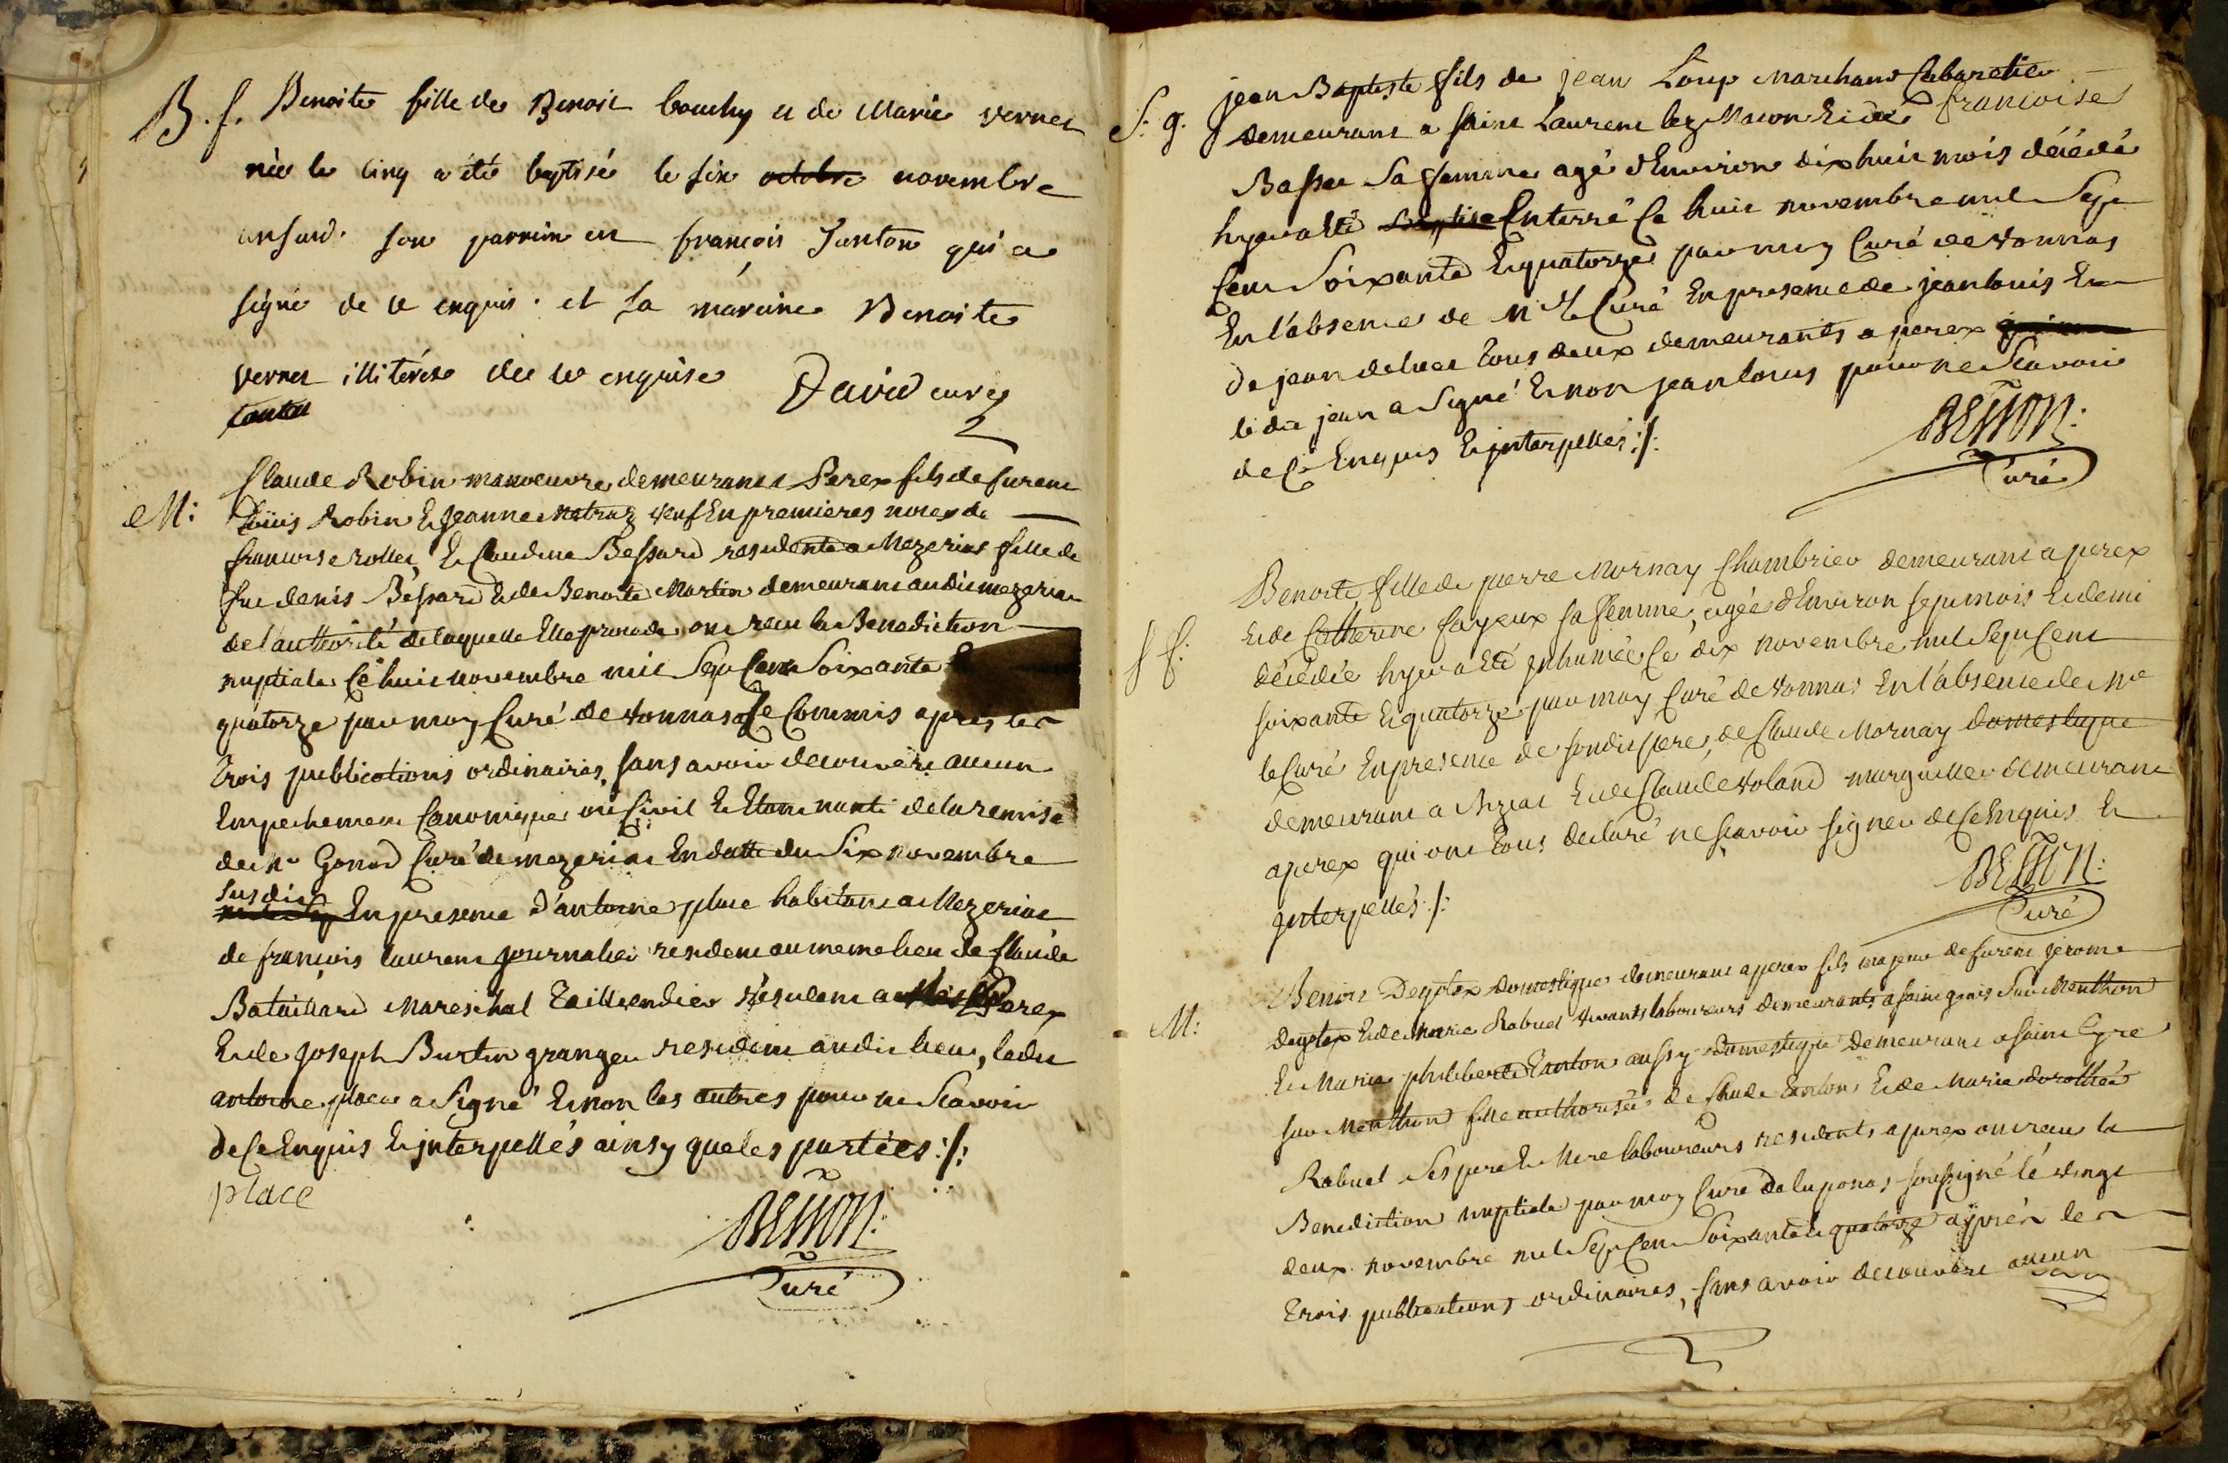 B. f. Benoite fille de Benoit bouchy et de Marie vernet
née le cinq a été baptisé le six octobre novembre
son parrain est françois Tanton qui a
signé de ce enquis. et la maraine Benoite
vernet illitérée de ce enquise David curé
tantôn
M: Claude Robin manoeuvre demeurant a Perex fils de furent
Loüis Robin & Jeanne veuf En premieres noces de
francoise rollet, & Claudine Bessard residente a Mezeriat fille de
feu denis Bessard & de Benoite Martin demeurant audit mezeriat
de l'authorité de laquelle Elle procede, ont recu la Benediction
nuptiale Ce huit novembre mil Sept Cent Soixante
quatorze par moy Curé de vonnas Commis apres les
trois publications ordinaires, sans avoir decouvert aucun
Empechement Canonique ou Civil & Etant nanti de la remise
de Mr Gonod Curé de mezeriat En datte du Six novembre
susdit En presence d'antoine place habitant a Mezeriat
de françois laurent journalier resident au meme lieu de Claude
Bataillard Mareschal Taillandier résident a Perex
& de joseph Burtin granger resident audit lieu, ledit
antoine place a Signé & non les autres pour ne Scavoir
de Ce Enquis & jnterpellés ainsy que les parties :/:
place
BESSON:
Curé
S: g. jean Baptiste fils de jean Loup Marchand Cabaretier
demeurant a saint Laurent lez Macon & de francoise
Basset Sa femme agé d'Environ dix huit mois décédé
hyer a été Enterré Ce huit novembre mil Sept
Cent Soixante & quatorze par moy Curé de vonnas
En l'absence de Mr le Curé En presence de jean louis &
de jean tous deux demeurants a perex
ledit jean a Signé & non jean louis pour ne Scavoir
de Ce Enquis & jnterpellés :/:
BESSON:
Curé
S f: Benoite fille de pierre Mornay Chambrier demeurant a perex
& de Catherine fayeux sa femme, agée d'Environ sept mois & demi
décédée hyer a Eté jnhumée Ce dix novembre mil Sept Cent
soixante & quatorze par moy Curé de vonnas En l'absence de Mr
le Curé En presence de sondit pere, de Claude Mornay domestique
demeurant a & de Claude voland marguillier demeurant
a perex qui ont tous declaré ne scavoir signer de Ce Enquis &
jnterpellés :/:
BESSON:
Curé
M: Benoit Degotex domestique demeurant a perex fils majeur de furent jerome
Degotex & de Marie Rabuel vivants laboureurs demeurants a saint Sur Menthon
& Marie philiberte Tanton aussy domestique demeurant a Saint Cyre
sur Menthon fille authorisée de Claude Tanton & de Marie dorothée
Rabuel Ses pere & Mere laboureurs residents a perex ont recu la
Benediction nuptiale par moy Curé de luponas soussigné le vingt
deux novembre mil Sept Cent Soixante & quatorze apprés les
trois publications ordinaires, sans avoir decouvert aucun